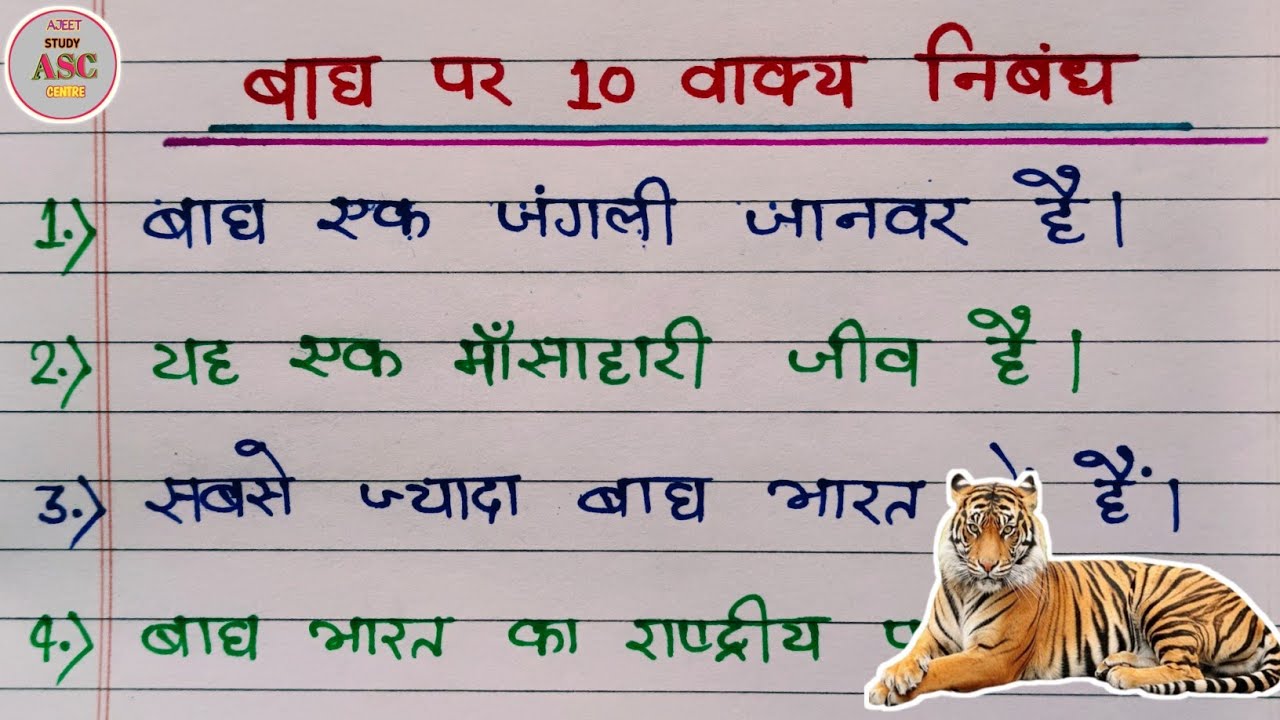 AJEET
STUDY
ASC
CENTRE
बाघ पर 10 वाक्य निबंध
1.) बाघ एक जंगली जानवर है।
2.) यह एक माँसाहारी जीव है।
3.) सबसे ज्यादा बाघ भारत हैं।
4.) बाघ भारत का राष्ट्रीय